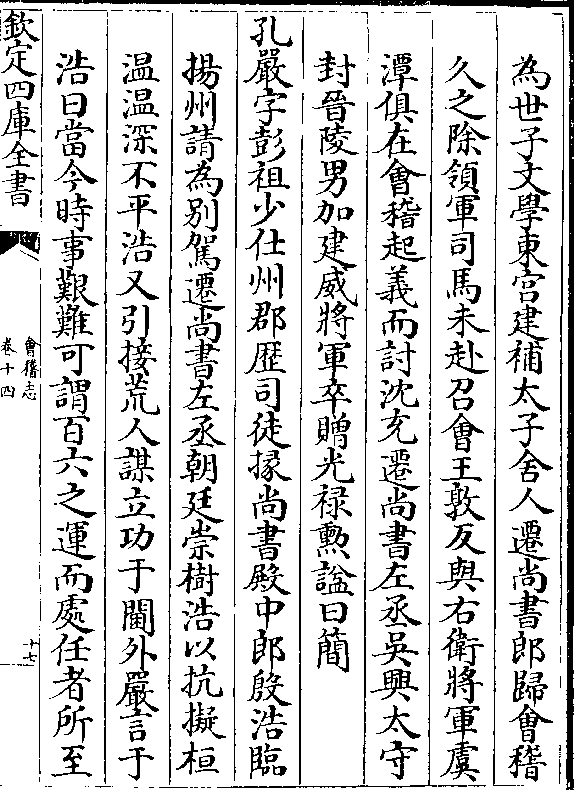 為世子文學東宮建補太子舍人遷尚書郎歸會稽
久之除領軍司馬未赴召會王敦反與右衛將軍虞
潭俱在會稽起義而討沈充遷尚書左丞吳興太守
封晉陵男加建威將軍卒贈光禄勲諡曰簡
孔嚴字彭祖少仕州郡歴司徒掾尚書殿中郎殷浩臨
揚州請為别駕遷尚書左丞朝廷崇樹浩以抗擬桓
温温深不平浩又引接荒人謀立功于閫外嚴言于
浩曰當今時事艱難可謂百六之運而處任者所至
欽定四庫全書
會稽志
卷十四
十七